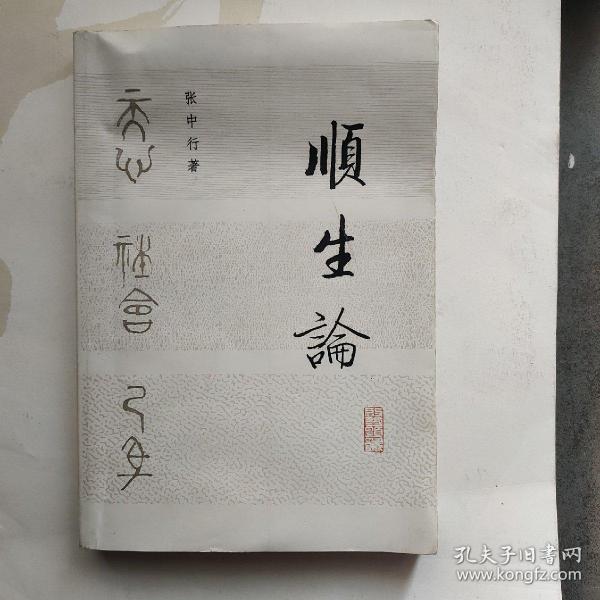 順生論
张中行著
天心
社會
己身
孔夫子旧書网
www.kongfz.com